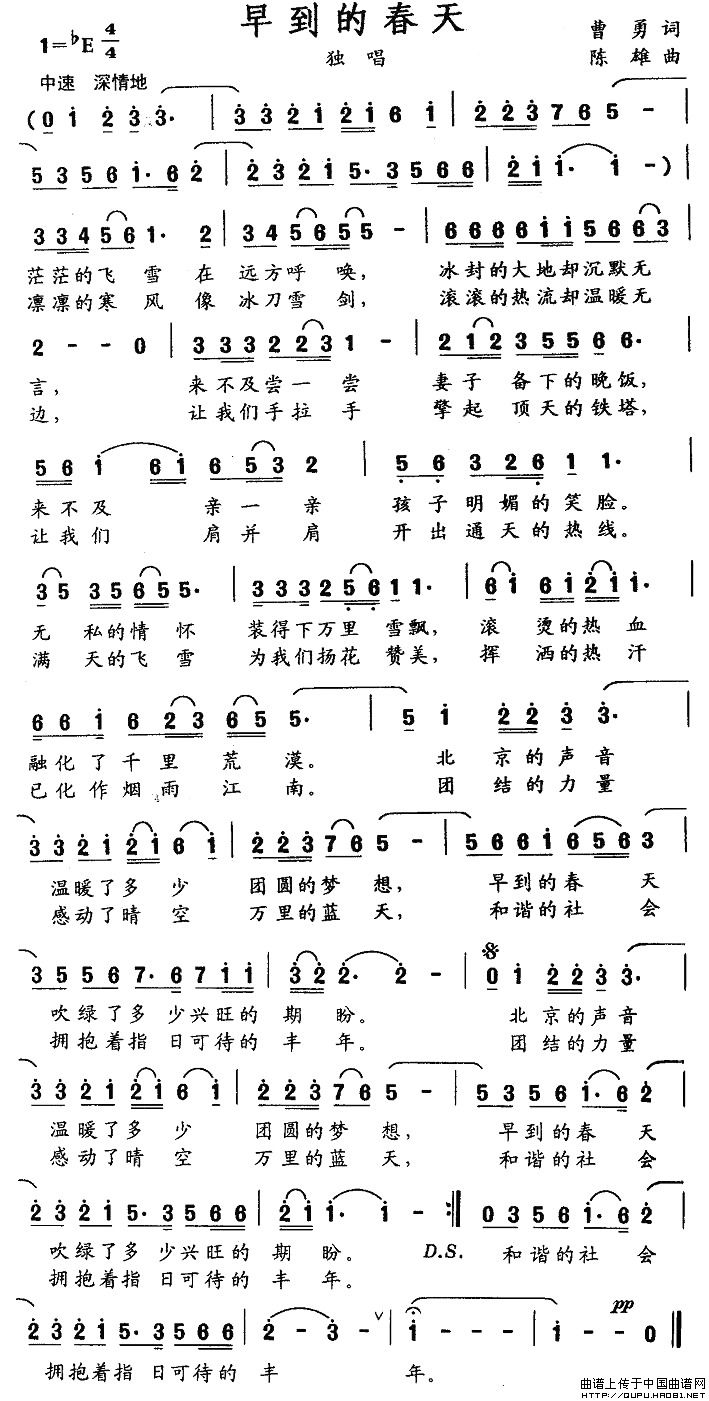 早到的春天
1=♭E 4/4
独唱
曹勇词
陈雄曲
中速 深情地
(0 1 2 3 3· | 3 3 2 1 2 1 6 1 | 2 2 3 7 6 5 -
5 3 5 6 1· 6 2 | 2 3 2 1 5· 3 5 6 6 | 2 1 1· 1 -) |
3 3 4 5 6 1· 2 | 3 4 5 6 5 5 - | 6 6 6 6 1 1 5 6 6 3 |
茫茫的飞 雪 在 远方呼 唤， 冰封的大地却沉默无
凛凛的寒 风 像 冰刀雪 剑， 滚滚的热流却温暖无
2 - - 0 | 3 3 3 2 2 3 1 - | 2 1 2 3 5 5 6 6· |
言， 来不及尝一尝 妻子 备下的晚饭，
边， 让我们手拉手 擎起 顶天的铁塔，
5 6 1 6 1 6 5 3 2 | 5 6 3 2 6 1 1· |
来不及 亲一亲 孩子明媚的笑脸。
让我们 肩并肩 开出通天的热线。
3 5 3 5 6 5 5· | 3 3 3 2 5 6 1 1· | 6 1 6 1 2 1 1· |
无 私的情 怀 装得下万里 雪飘， 滚 烫的热 血
满 天的飞 雪 为我们扬花 赞美， 挥 洒的热 汗
6 6 1 6 2 3 6 5 5· | 5 1 2 2 3 3· |
融化了千里 荒 漠。 北 京的声音
已化作烟雨 江 南。 团 结的力量
3 3 2 1 2 1 6 1 | 2 2 3 7 6 5 - | 5 6 6 1 6 5 6 3 |
温暖了多 少 团圆的梦 想， 早到的春 天
感动了晴 空 万里的蓝 天， 和谐的社 会
3 5 5 6 7· 6 7 1 1 | 3 2 2· 2 - | 0 1 2 2 3 3· |
吹绿了多 少兴旺的 期 盼。 北京的声音
拥抱着指 日可待的 丰 年。 团结的力量
3 3 2 1 2 1 6 1 | 2 2 3 7 6 5 - | 5 3 5 6 1· 6 2 |
温暖了多 少 团圆的梦 想， 早到的春 天
感动了晴 空 万里的蓝 天， 和谐的社 会
2 3 2 1 5· 3 5 6 6 | 2 1 1· 1 - :‖ 0 3 5 6 1· 6 2 |
吹绿了多 少兴旺的 期 盼。 D.S. 和谐的社 会
拥抱着指 日可待的 丰 年。
pp
2 3 2 1 5· 3 5 6 6 | 2 - 3 - ∨ | 1 - - - | 1 - - 0 ‖
拥抱着指 日可待的 丰 年。
曲谱上传于中国曲谱网
www.qupu.hao81.net